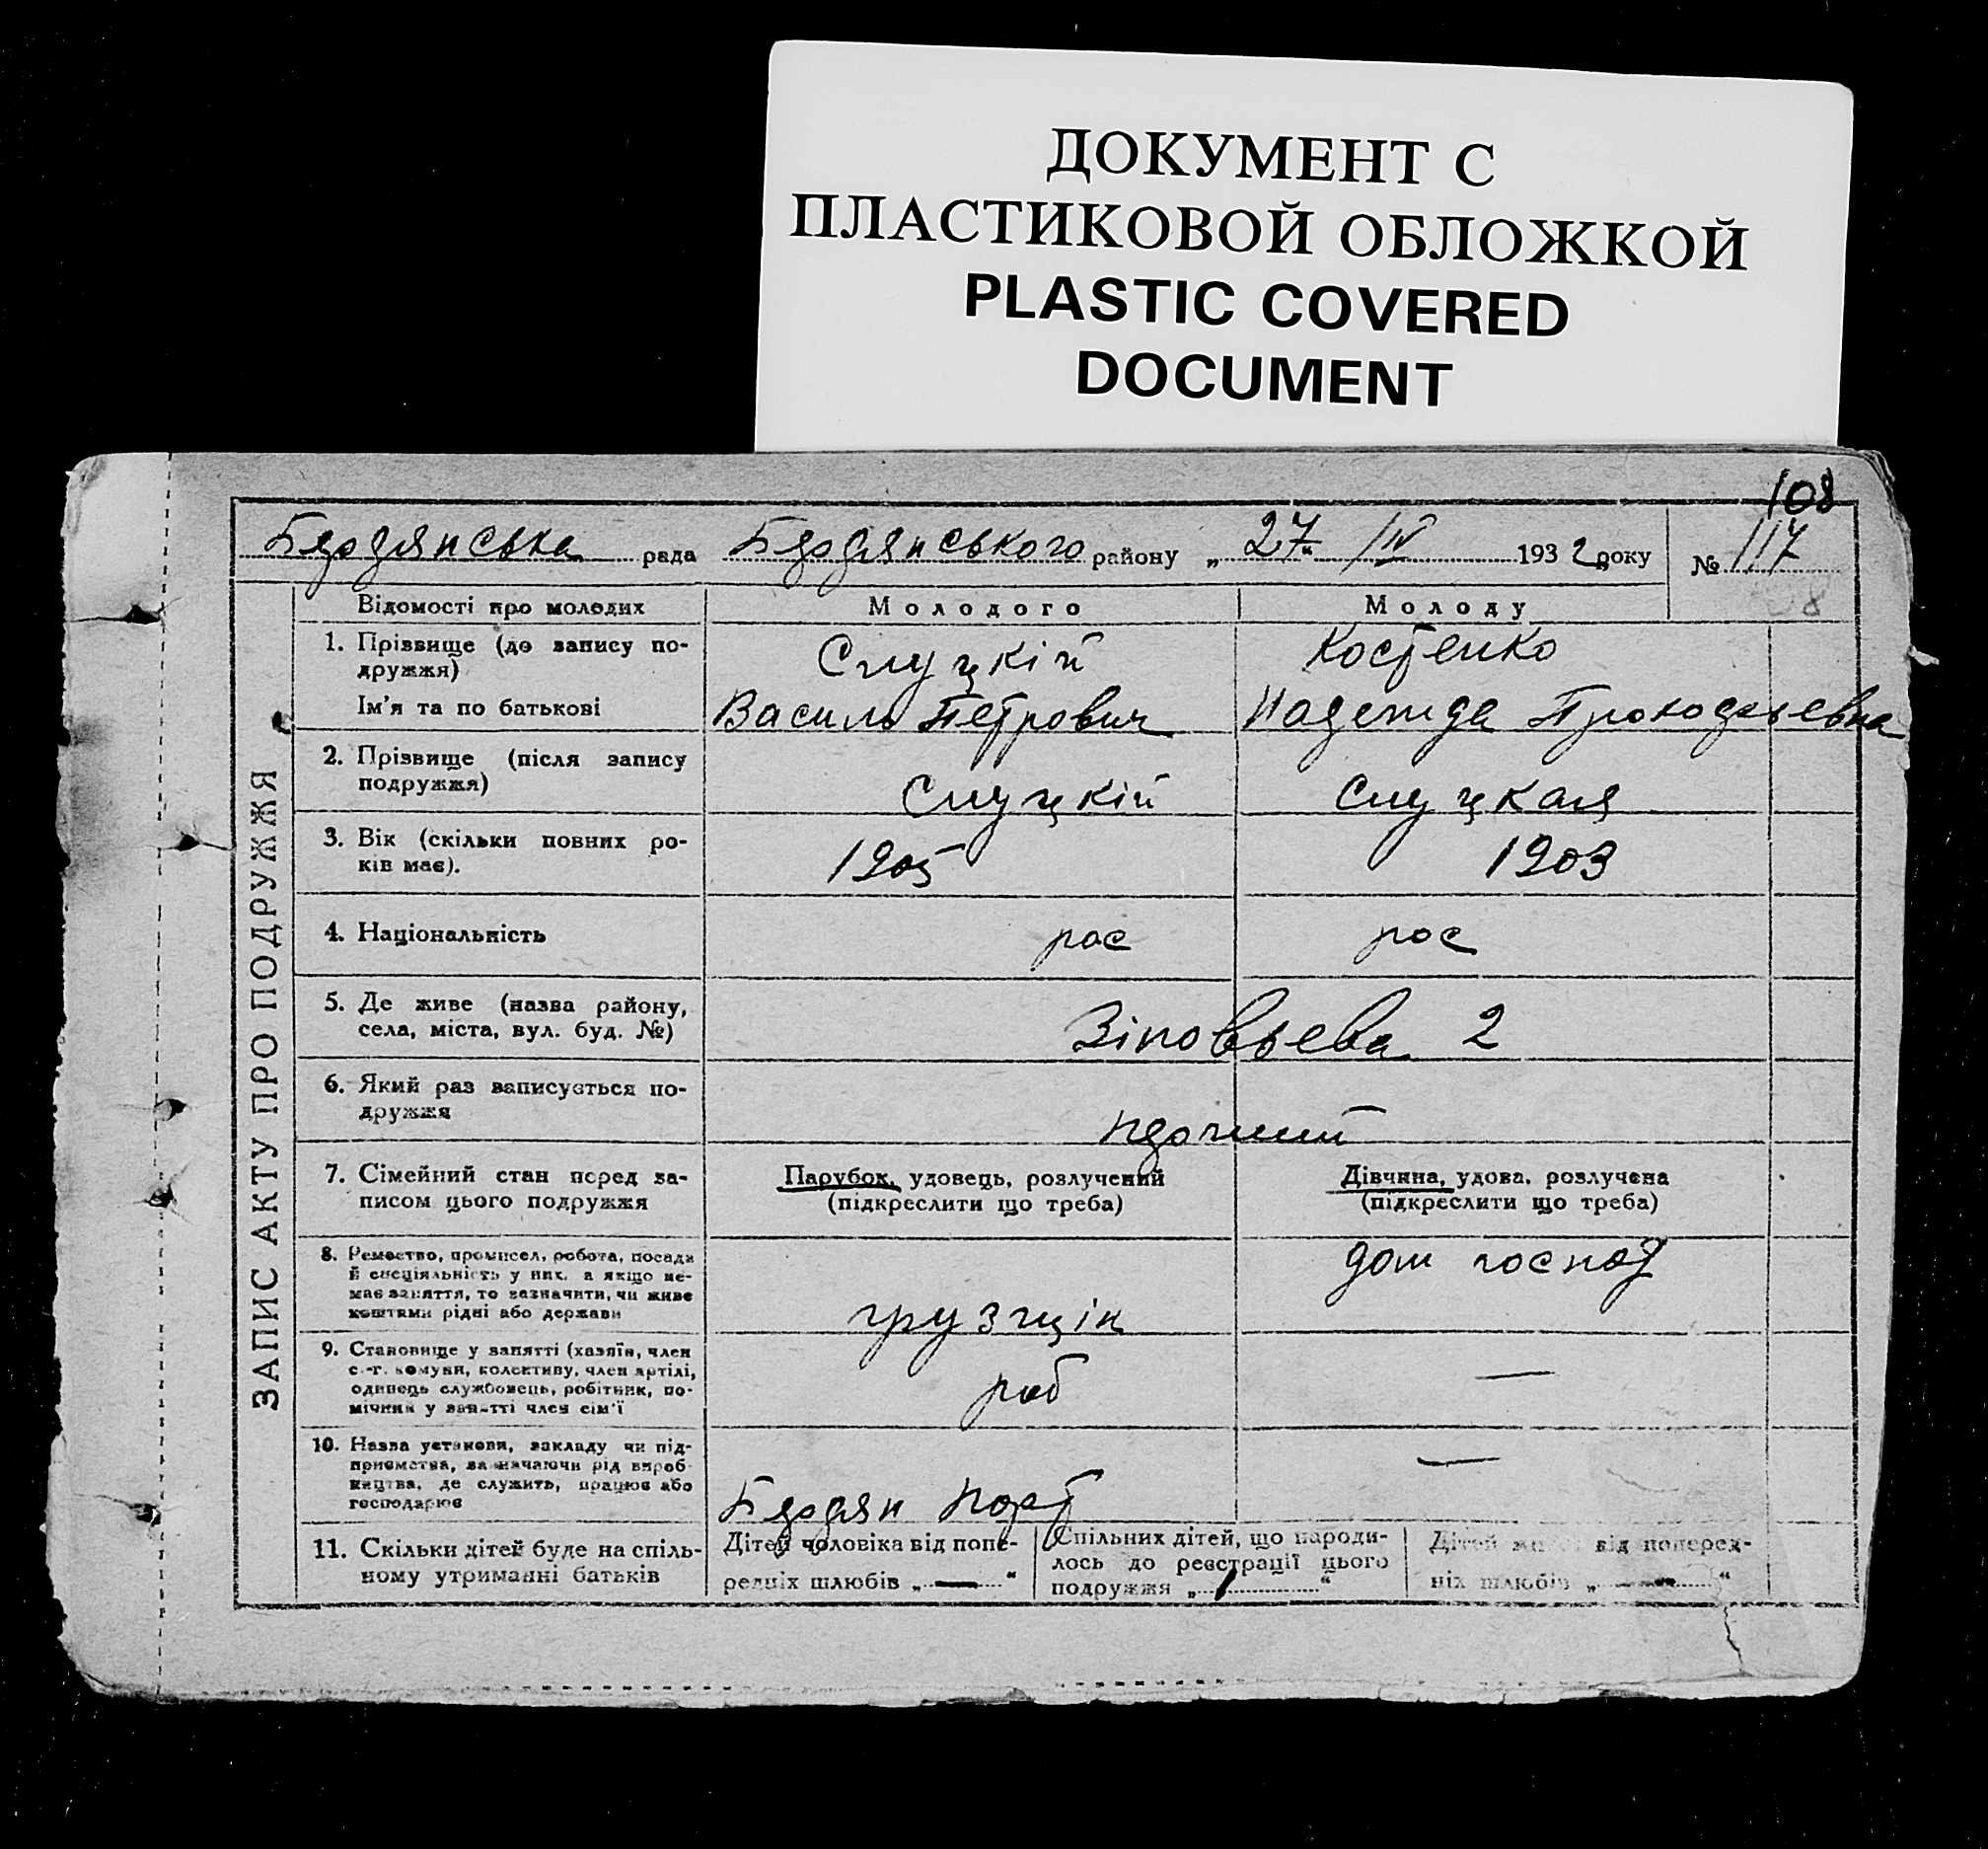 ДОКУМЕНТ С
ПЛАСТИКОВОЙ ОБЛОЖКОЙ
PLASTIC COVERED
DOCUMENT
108
Бердянська рада Бердянського району „ 27 “ /IV 1932 року № 117
ЗАПИС АКТУ ПРО ПОДРУЖЖЯ
Відомості про молодих Молодого Молоду
1. Прізвище (до запису по-
дружжя) Слуцкій Костенко
Ім'я та по батькові Василь Петрович Надежда
2. Прізвище (після запису
подружжя) Слуцкій Слуцкая
3. Вік (скільки повних ро-
ків має). 1905 1903
4. Національність рос рос
5. Де живе (назва району,
села, міста, вул. буд. №) Зіновьева 2
6. Який раз записується по-
дружжя перший
7. Сімейний стан перед за-
писом цього подружжя
Парубок, удовець, розлучений
(підкреслити що треба)
Дівчина, удова, розлучена
(підкреслити що треба)
8. Ремество, промисел, робота, посада
й спеціяльність у них, а якщо не-
має заняття, то зазначити, чи живе
коштами рідні або держави
грузчік дом господ
9. Становище у занятті (хазяїн, член
с.-г. комуни, колективу, член артілі,
одинець службовець, робітник, по-
мічний у занятті член сім'ї
роб —
10. Назва установи, закладу чи під-
приємства, зазначаючи рід вироб-
ництва, де служить, працює або
господарює
Бердян порт —
11. Скільки дітей буде на спіль-
ному утриманні батьків
Дітей чоловіка від попе-
редніх шлюбів „ — “
Спільних дітей, що народи-
лось до реєстрації цього
подружжя „ 1 “
Дітей жінки від поперед-
ніх шлюбів „ — “